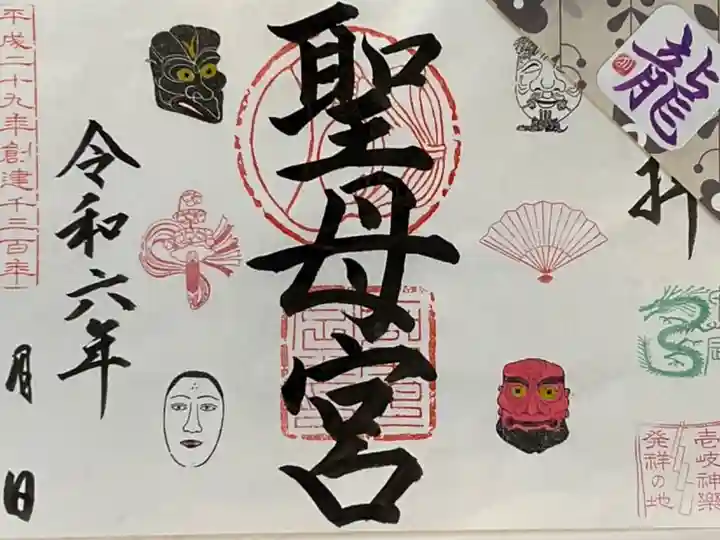 龍
壱岐神樂
発祥の地
聖母宮
令和六年
月 日
平成二十九年創建千三百年